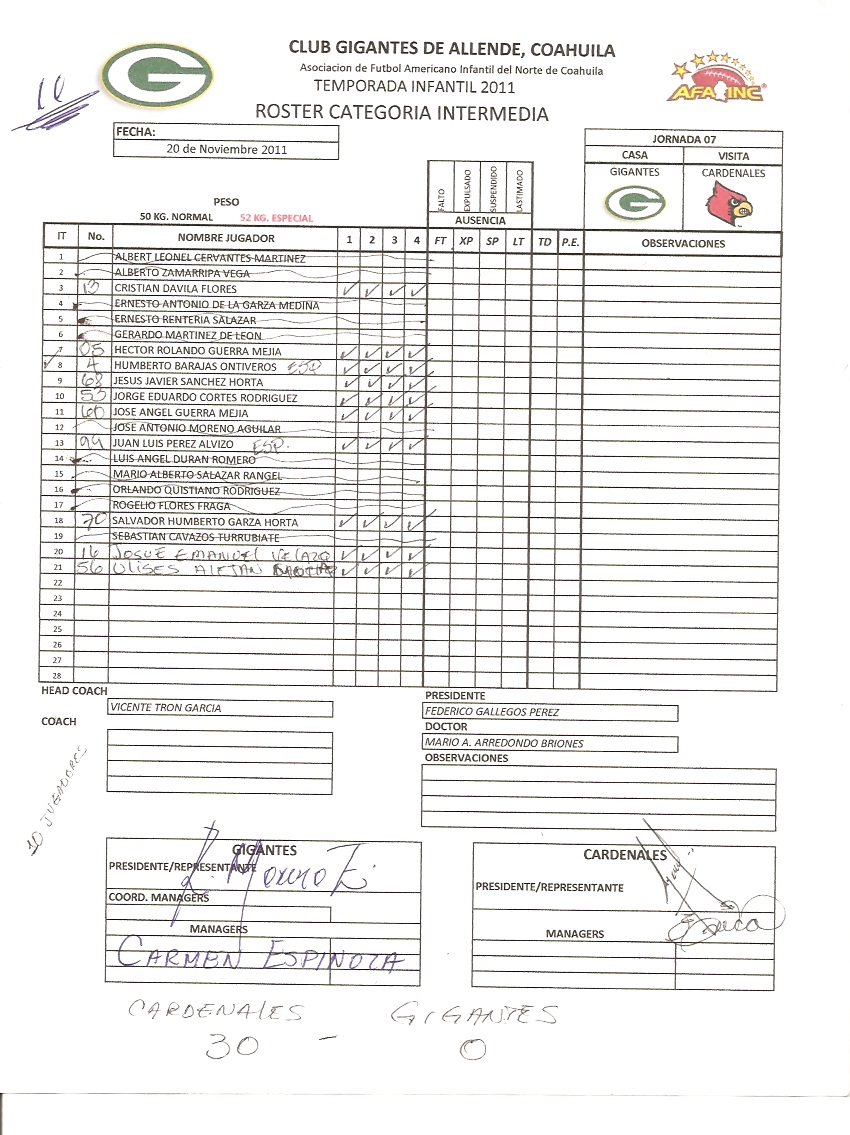 CLUB GIGANTES DE ALLENDE, COAHUILA
Asociacion de Futbol Americano Infantil del Norte de Coahuila
TEMPORADA INFANTIL 2011
ROSTER CATEGORIA INTERMEDIA
G
AFA INC
10
FECHA:
20 de Noviembre 2011
JORNADA 07
CASA VISITA
GIGANTES CARDENALES
G
FALTO EXPULSADO SUSPENDIDO LASTIMADO
PESO
50 KG. NORMAL 52 KG. ESPECIAL
AUSENCIA
IT No. NOMBRE JUGADOR 1 2 3 4 FT XP SP LT TD P.E. OBSERVACIONES
1 ALBERT LEONEL CERVANTES MARTINEZ
2 ALBERTO ZAMARRIPA VEGA
3 13 CRISTIAN DAVILA FLORES ✓ ✓ ✓ ✓
4 ERNESTO ANTONIO DE LA GARZA MEDINA
5 ERNESTO RENTERIA SALAZAR
6 GERARDO MARTINEZ DE LEON
7 05 HECTOR ROLANDO GUERRA MEJIA ✓ ✓ ✓ ✓
8 4 HUMBERTO BARAJAS ONTIVEROS ESP ✓ ✓ ✓ ✓
9 68 JESUS JAVIER SANCHEZ HORTA ✓ ✓ ✓ ✓
10 53 JORGE EDUARDO CORTES RODRIGUEZ ✓ ✓ ✓ ✓
11 60 JOSE ANGEL GUERRA MEJIA ✓ ✓ ✓ ✓
12 JOSE ANTONIO MORENO AGUILAR
13 99 JUAN LUIS PEREZ ALVIZO ESP. ✓ ✓ ✓ ✓
14 LUIS ANGEL DURAN ROMERO
15 MARIO ALBERTO SALAZAR RANGEL
16 ORLANDO QUISTIANO RODRIGUEZ
17 ROGELIO FLORES FRAGA
18 70 SALVADOR HUMBERTO GARZA HORTA ✓ ✓ ✓ ✓
19 SEBASTIAN CAVAZOS TURRUBIATE
20 16 JOSUE EMANUEL VELAZQ ✓ ✓ ✓ ✓
21 56 ULISES ALEJAN ✓ ✓ ✓ ✓
22
23
24
25
26
27
28
HEAD COACH
VICENTE TRON GARCIA
COACH
PRESIDENTE
FEDERICO GALLEGOS PEREZ
DOCTOR
MARIO A. ARREDONDO BRIONES
OBSERVACIONES
10 JUGADORES
GIGANTES
PRESIDENTE/REPRESENTANTE
COORD. MANAGERS
MANAGERS
CARMEN ESPINOZA
CARDENALES
PRESIDENTE/REPRESENTANTE
MANAGERS
CARDENALES GIGANTES
30 - 0